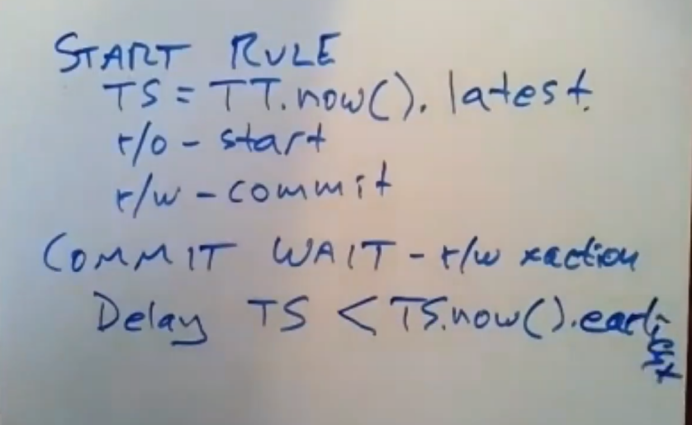 START RULE
TS = TT.now(). latest.
r/o - start
r/w - commit
COMMIT WAIT - r/w xaction
Delay TS < TS.now().earliest